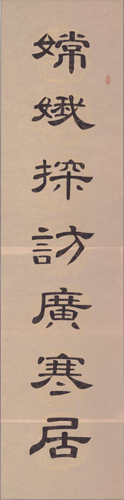 嫦娥探訪廣寒居